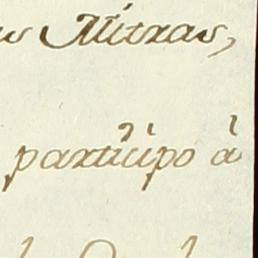 Mitras,
participo à